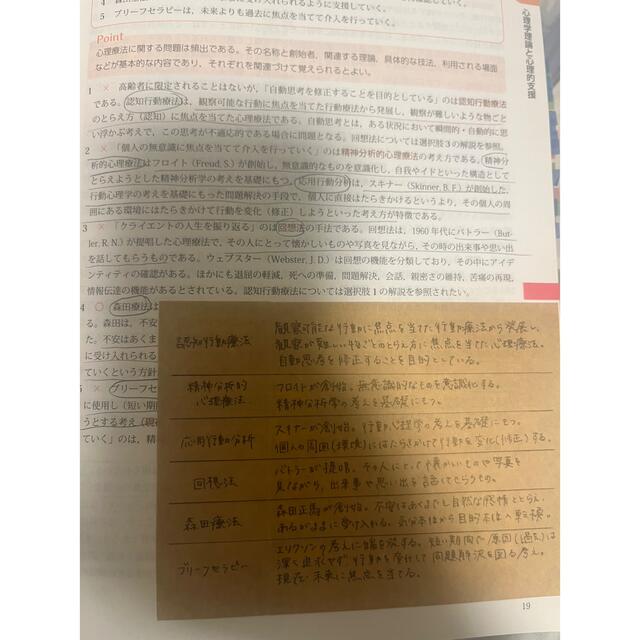 5 ブリーフセラピーは、未来よりも過去に焦点を当てて介入を行っていく。
Point
心理療法に関する問題は頻出である。その名称と創始者、関連する理論、具体的な技法、利用される場面
などが基本的な内容であり、それぞれを関連づけて覚えられるとよい。
1 × 高齢者に限定されることはないが、「自動思考を修正することを目的としている」のは認知行動療法
である。認知行動療法は、観察可能な行動に焦点を当てた行動療法から発展し、観察が難しいような物ごと
のとらえ方（認知）に焦点を当てた心理療法である。自動思考とは、ある状況において瞬間的・自動的に思
い浮かぶ考えで、この思考が不適応的である場合に問題となる。回想法については選択肢3の解説を参照。
2 × 「個人の無意識に焦点を当てて介入を行っていく」のは精神分析的心理療法の考え方である。精神分
析的心理療法はフロイト（Freud, S.）が創始し、無意識的なものを意識化し、自我やイドといった構造として
とらえようとした精神分析学の考えを基礎にもつ。応用行動分析は、スキナー（Skinner, B. F.）が創始した、
行動心理学の考えを基礎にもった問題解決の手段で、個人に直接はたらきかけるというより、その個人の周
囲にある環境にはたらきかけて行動を変化（修正）しようといった考え方が特徴である。
3 × 「クライエントの人生を振り返る」のは回想法の手法である。回想法は、1960年代にバトラー（But-
ler, R. N.）が提唱した心理療法で、その人にとって懐かしいものや写真を見ながら、その時の出来事や思い出
を話してもらうものである。ウェブスター（Webster, J. D.）は回想の機能を分類しており、その中にアイデ
ンティティの確認がある。ほかにも退屈の軽減、死への準備、問題解決、会話、親密さの維持、苦痛の再現、
情報伝達の機能があるとされている。認知行動療法については選択肢1の解説を参照されたい。
4 ○ 森田療法は
る。森田は、不安
た。不安はあくま
に受け入れられる
ていくという方針
5 × ブリーフセラピ
に使用し（短い期
うとする考え（現在
ていく」のは、精神
心理学理論と心理的支援
認知行動療法
観察可能な行動に焦点を当てた行動療法から発展し、
観察が難しい物ごとのとらえ方に焦点を当てた心理療法。
自動思考を修正することを目的としている。
精神分析的
心理療法
フロイトが創始。無意識的なものを意識化する。
精神分析学の考えを基礎にもつ。
応用行動分析
スキナーが創始。行動心理学の考えを基礎にもつ。
個人の周囲（環境）にはたらきかけて行動を変化（修正）する。
回想法
バトラーが提唱。その人にとって懐かしいものや写真を
見ながら、出来事や思い出を話してもらうもの。
森田療法
森田正馬が創始。不安はあくまでも自然な感情ととらえ、
あるがままに受け入れる。気分本位から目的本位へ転換。
ブリーフセラピー
エリクソンの考えに端を発する。短い期間で原因（過去）は
深く追求せず、行動を実行して問題解決を図る考え。
現在・未来に焦点を当てる。
19